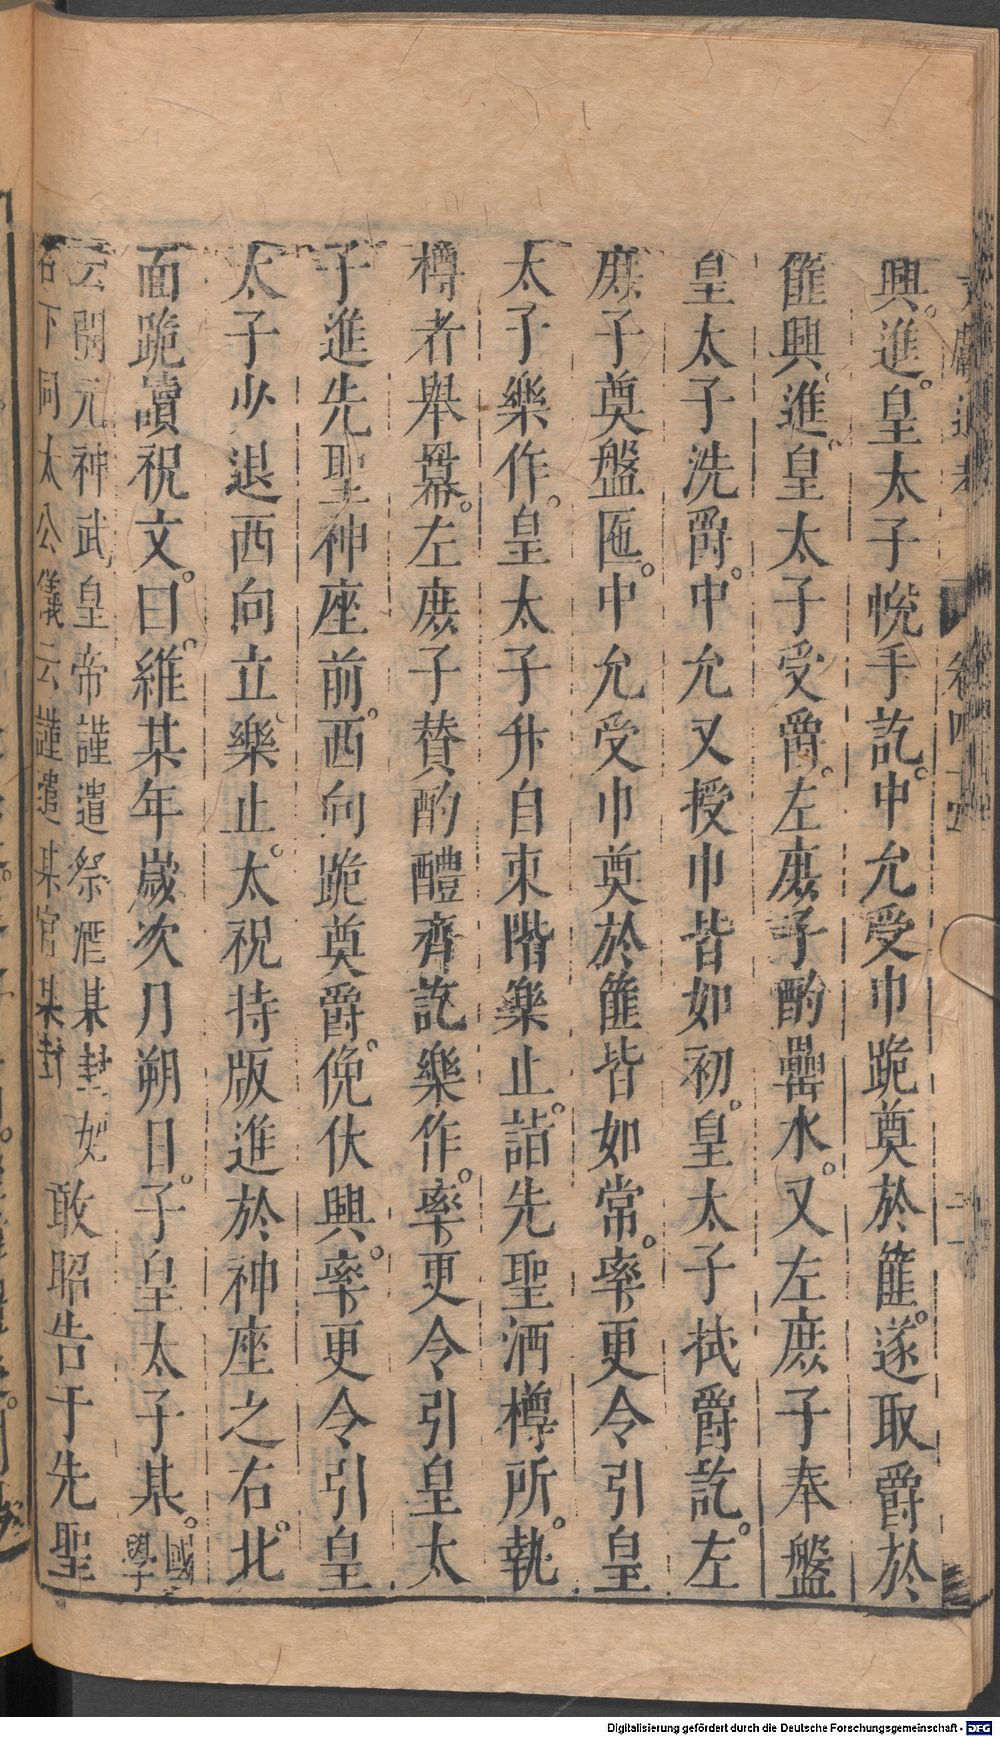 文獻通考 卷四十四
興。進。皇太子帨手訖。中允受巾跪奠於篚。遂取爵於
篚興。進。皇太子受爵。左庶子酌罍水。又左庶子奉盤
皇太子洗爵。中允又授巾皆如初。皇太子拭爵訖。左
庶子奠盤匜。中允受巾奠於篚皆如常。率更令引皇
太子樂作。皇太子升自東階樂止。詣先聖酒樽所。執
樽者舉冪。左庶子贊酌醴齊訖樂作。率更令引皇太
子進先聖神座前。西向跪奠爵。俛伏興。率更令引皇
太子少退西向立。樂止。太祝持版進於神座之右。北
面跪讀祝文。曰。維某年歲次月朔日。子皇太子某。國學
云開元神武皇帝謹遣祭酒某封姓
名下同太公儀云謹遣某官某封
敢昭告于先聖
Digitalisierung gefördert durch die Deutsche Forschungsgemeinschaft - DFG